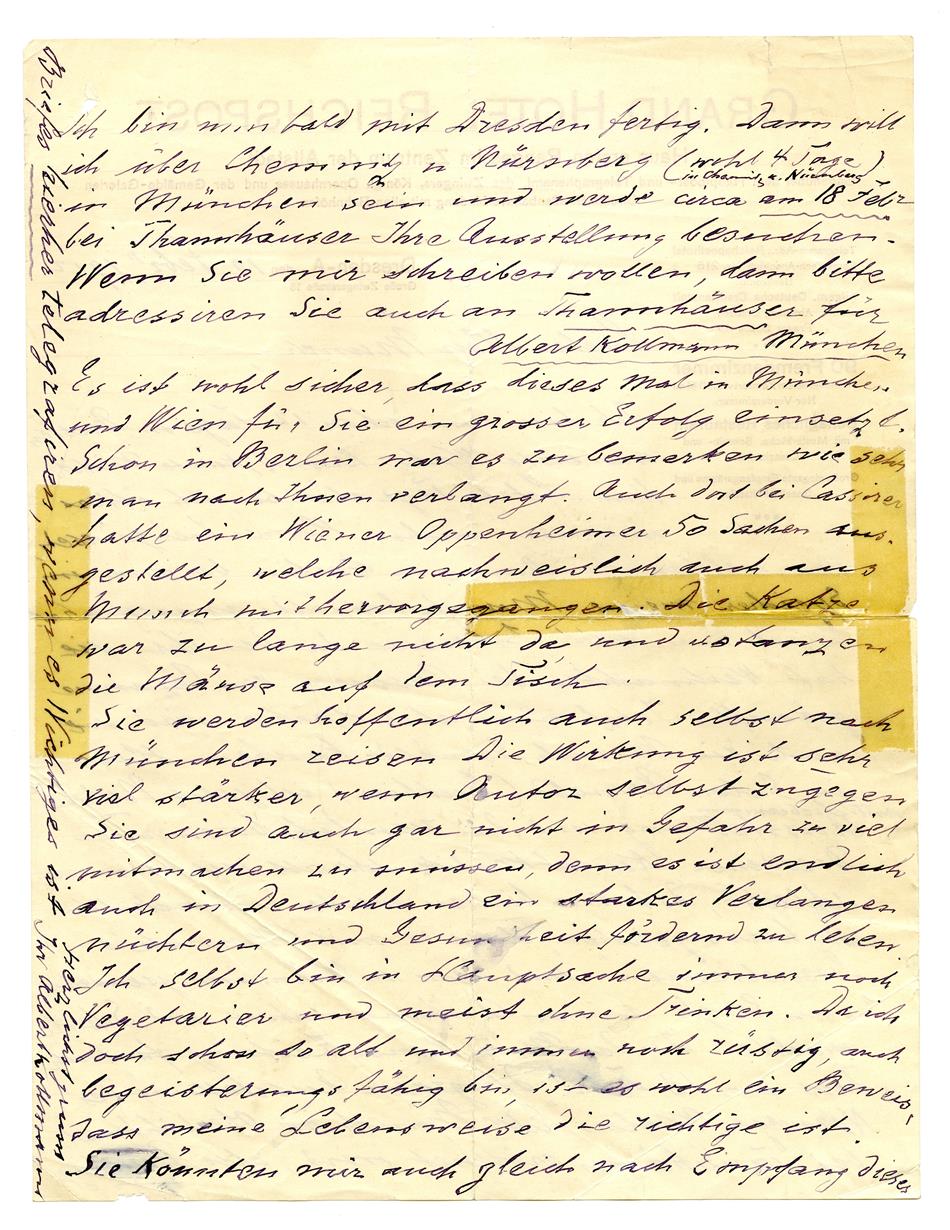 Ich bin nun bald mit Dresden fertig. Dann will
ich über Chemnitz u Nürnberg (wohl 4 Tage)
in Chemnitz u. Nürnberg
in München sein und werde circa am 18 Febr
bei Thannhäuser Ihre Ausstellung besuchen.
Wenn Sie mir schreiben wollen, dann bitte
adressiren Sie auch an Thannhäuser für
Albert Kollmann München
Es ist wohl sicher, dass dieses Mal in München
und Wien für Sie ein grosser Erfolg einsetzt.
Schon in Berlin war es zu bemerken wie sehr
man nach Ihnen verlangt. Auch dort bei Cassirer
hatte ein Wiener Oppenheimer 50 Sachen aus-
gestellt, welche nachweislich auch aus
Munch mithervorgegangen. Die Katze
war zu lange nicht da, und es tanzen
die Mäuse auf dem Tisch.
Sie werden hoffentlich auch selbst nach
München reisen Die Wirkung ist sehr
viel stärker, wenn Autor selbst zugegen
Sie sind auch gar nicht in Gefahr zu viel
mitmachen zu müssen, denn es ist endlich
auch in Deutschland ein starkes Verlangen
nüchtern und Gesundheit fördernd zu leben
Ich selbst bin in Hauptsache immer noch
Vegetarier und meist ohne Trinken. Da ich
doch schon so alt und immer noch rüstig, auch
begeisterungsfähig bin, ist es wohl ein Beweis,
dass meine Lebensweise die richtige ist.
Sie könnten mir auch gleich nach Empfang dieses
Briefes hierher telegrafiren, wenn es Wichtiges ist
Herzlichst grüsst
Ihr Albert Kollmann
GRAND HOTEL REICHSPOST